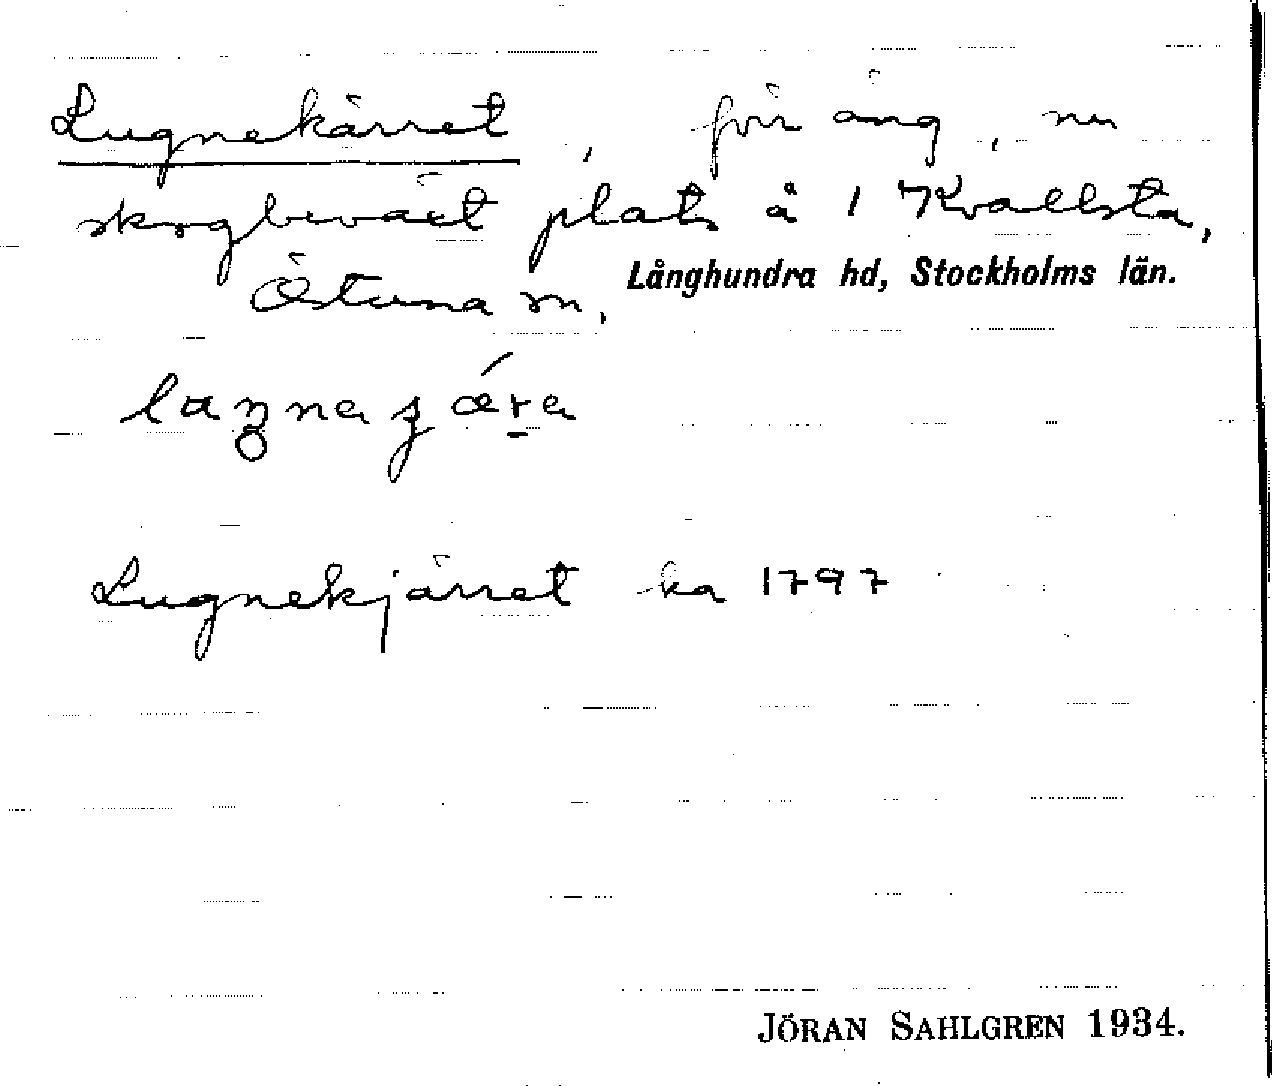 Lugnekärret, förr äng, nu
skogbeväxt plats å 1 Kvallsta,
Östuna sn, Långhundra hd, Stockholms län.
Lugnekjärret ka 1797
JÖRAN SAHLGREN 1934.